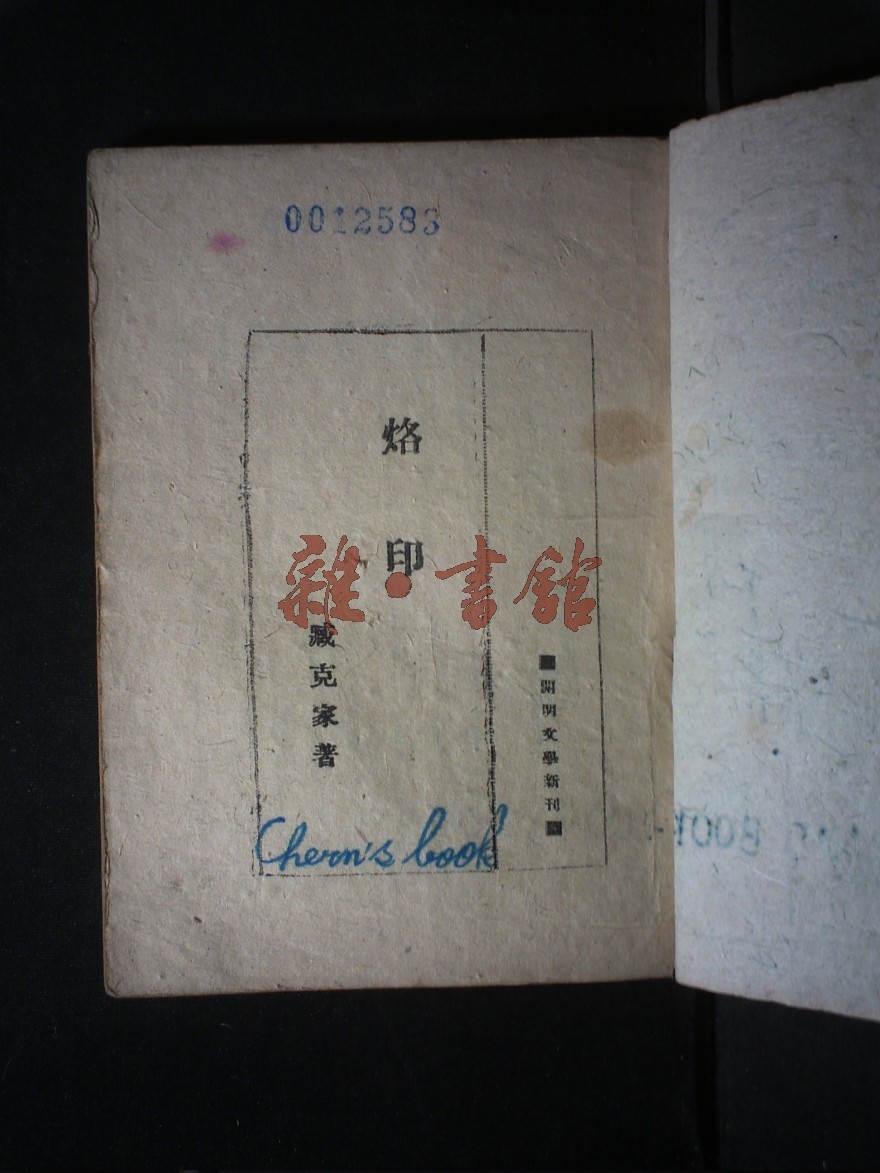 0012583
烙印
雜·書館
臧克家著
開明文學新刊
Chern's book
BOOK